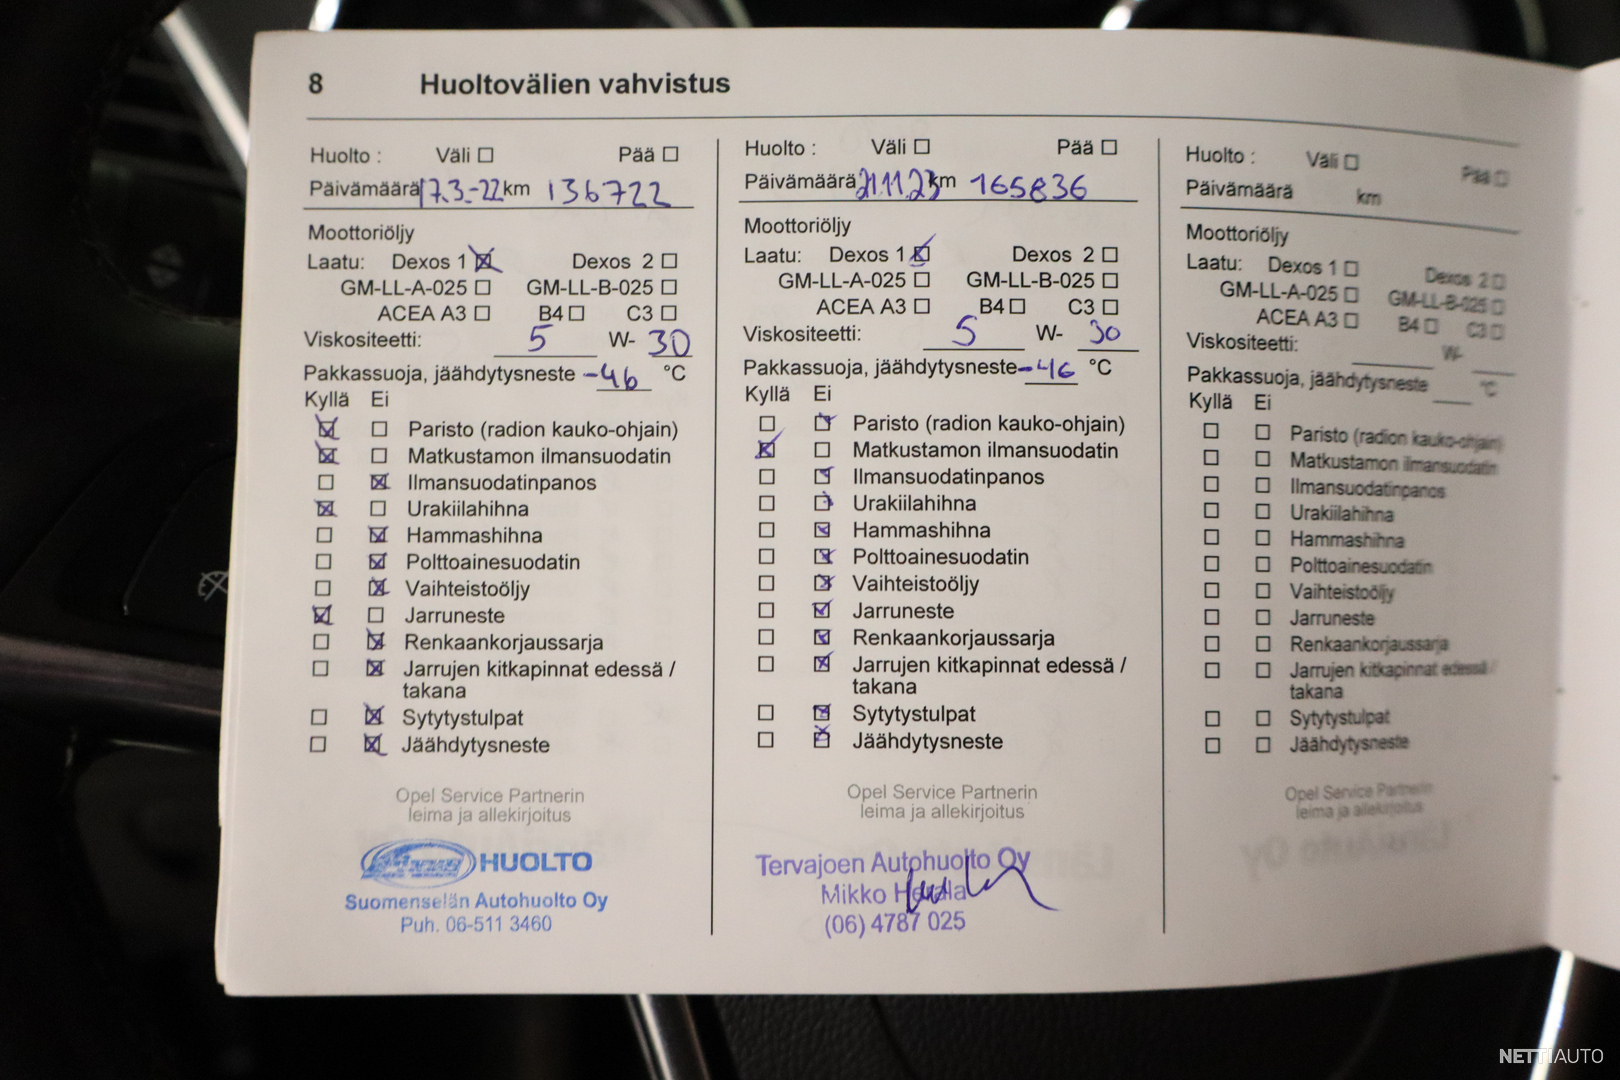 8 Huoltovälien vahvistus
Huolto : Väli Pää
Päivämäärä 17.3.-22 km 136722
Moottoriöljy
Laatu: Dexos 1 Dexos 2
GM-LL-A-025 GM-LL-B-025
ACEA A3 B4 C3
Viskositeetti: 5 W- 30
Pakkassuoja, jäähdytysneste -46 °C
Kyllä Ei
Paristo (radion kauko-ohjain)
Matkustamon ilmansuodatin
Ilmansuodatinpanos
Urakiilahihna
Hammashihna
Polttoainesuodatin
Vaihteistoöljy
Jarruneste
Renkaankorjaussarja
Jarrujen kitkapinnat edessä /
takana
Sytytystulpat
Jäähdytysneste
Opel Service Partnerin
leima ja allekirjoitus
HUOLTO
Suomenselän Autohuolto Oy
Puh. 06-511 3460
Huolto : Väli Pää
Päivämäärä 21.11.23 km 165836
Moottoriöljy
Laatu: Dexos 1 Dexos 2
GM-LL-A-025 GM-LL-B-025
ACEA A3 B4 C3
Viskositeetti: 5 W- 30
Pakkassuoja, jäähdytysneste -46 °C
Kyllä Ei
Paristo (radion kauko-ohjain)
Matkustamon ilmansuodatin
Ilmansuodatinpanos
Urakiilahihna
Hammashihna
Polttoainesuodatin
Vaihteistoöljy
Jarruneste
Renkaankorjaussarja
Jarrujen kitkapinnat edessä /
takana
Sytytystulpat
Jäähdytysneste
Opel Service Partnerin
leima ja allekirjoitus
Tervajoen Autohuolto Oy
Mikko
(06) 4787 025
Huolto : Väli Pää
Päivämäärä km
Moottoriöljy
Laatu: Dexos 1 Dexos 2
GM-LL-A-025 GM-LL-B-025
ACEA A3 B4 C3
Viskositeetti: W-
Pakkassuoja, jäähdytysneste °C
Kyllä Ei
Paristo (radion kauko-ohjain)
Matkustamon ilmansuodatin
Ilmansuodatinpanos
Urakiilahihna
Hammashihna
Polttoainesuodatin
Vaihteistoöljy
Jarruneste
Renkaankorjaussarja
Jarrujen kitkapinnat edessä /
takana
Sytytystulpat
Jäähdytysneste
Opel Service Partnerin
leima ja allekirjoitus
NETTIAUTO